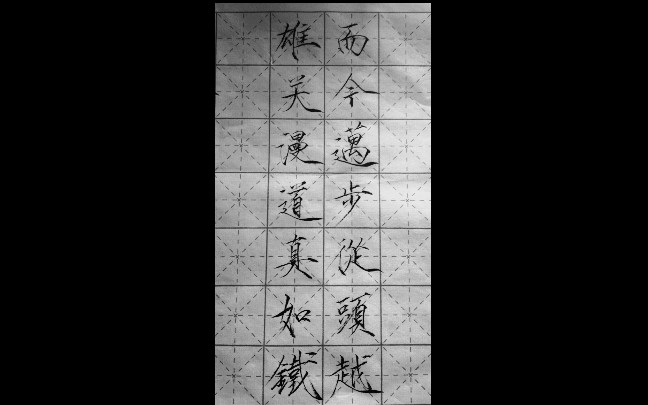 雄关漫道真如鐵
而今邁步從頭越